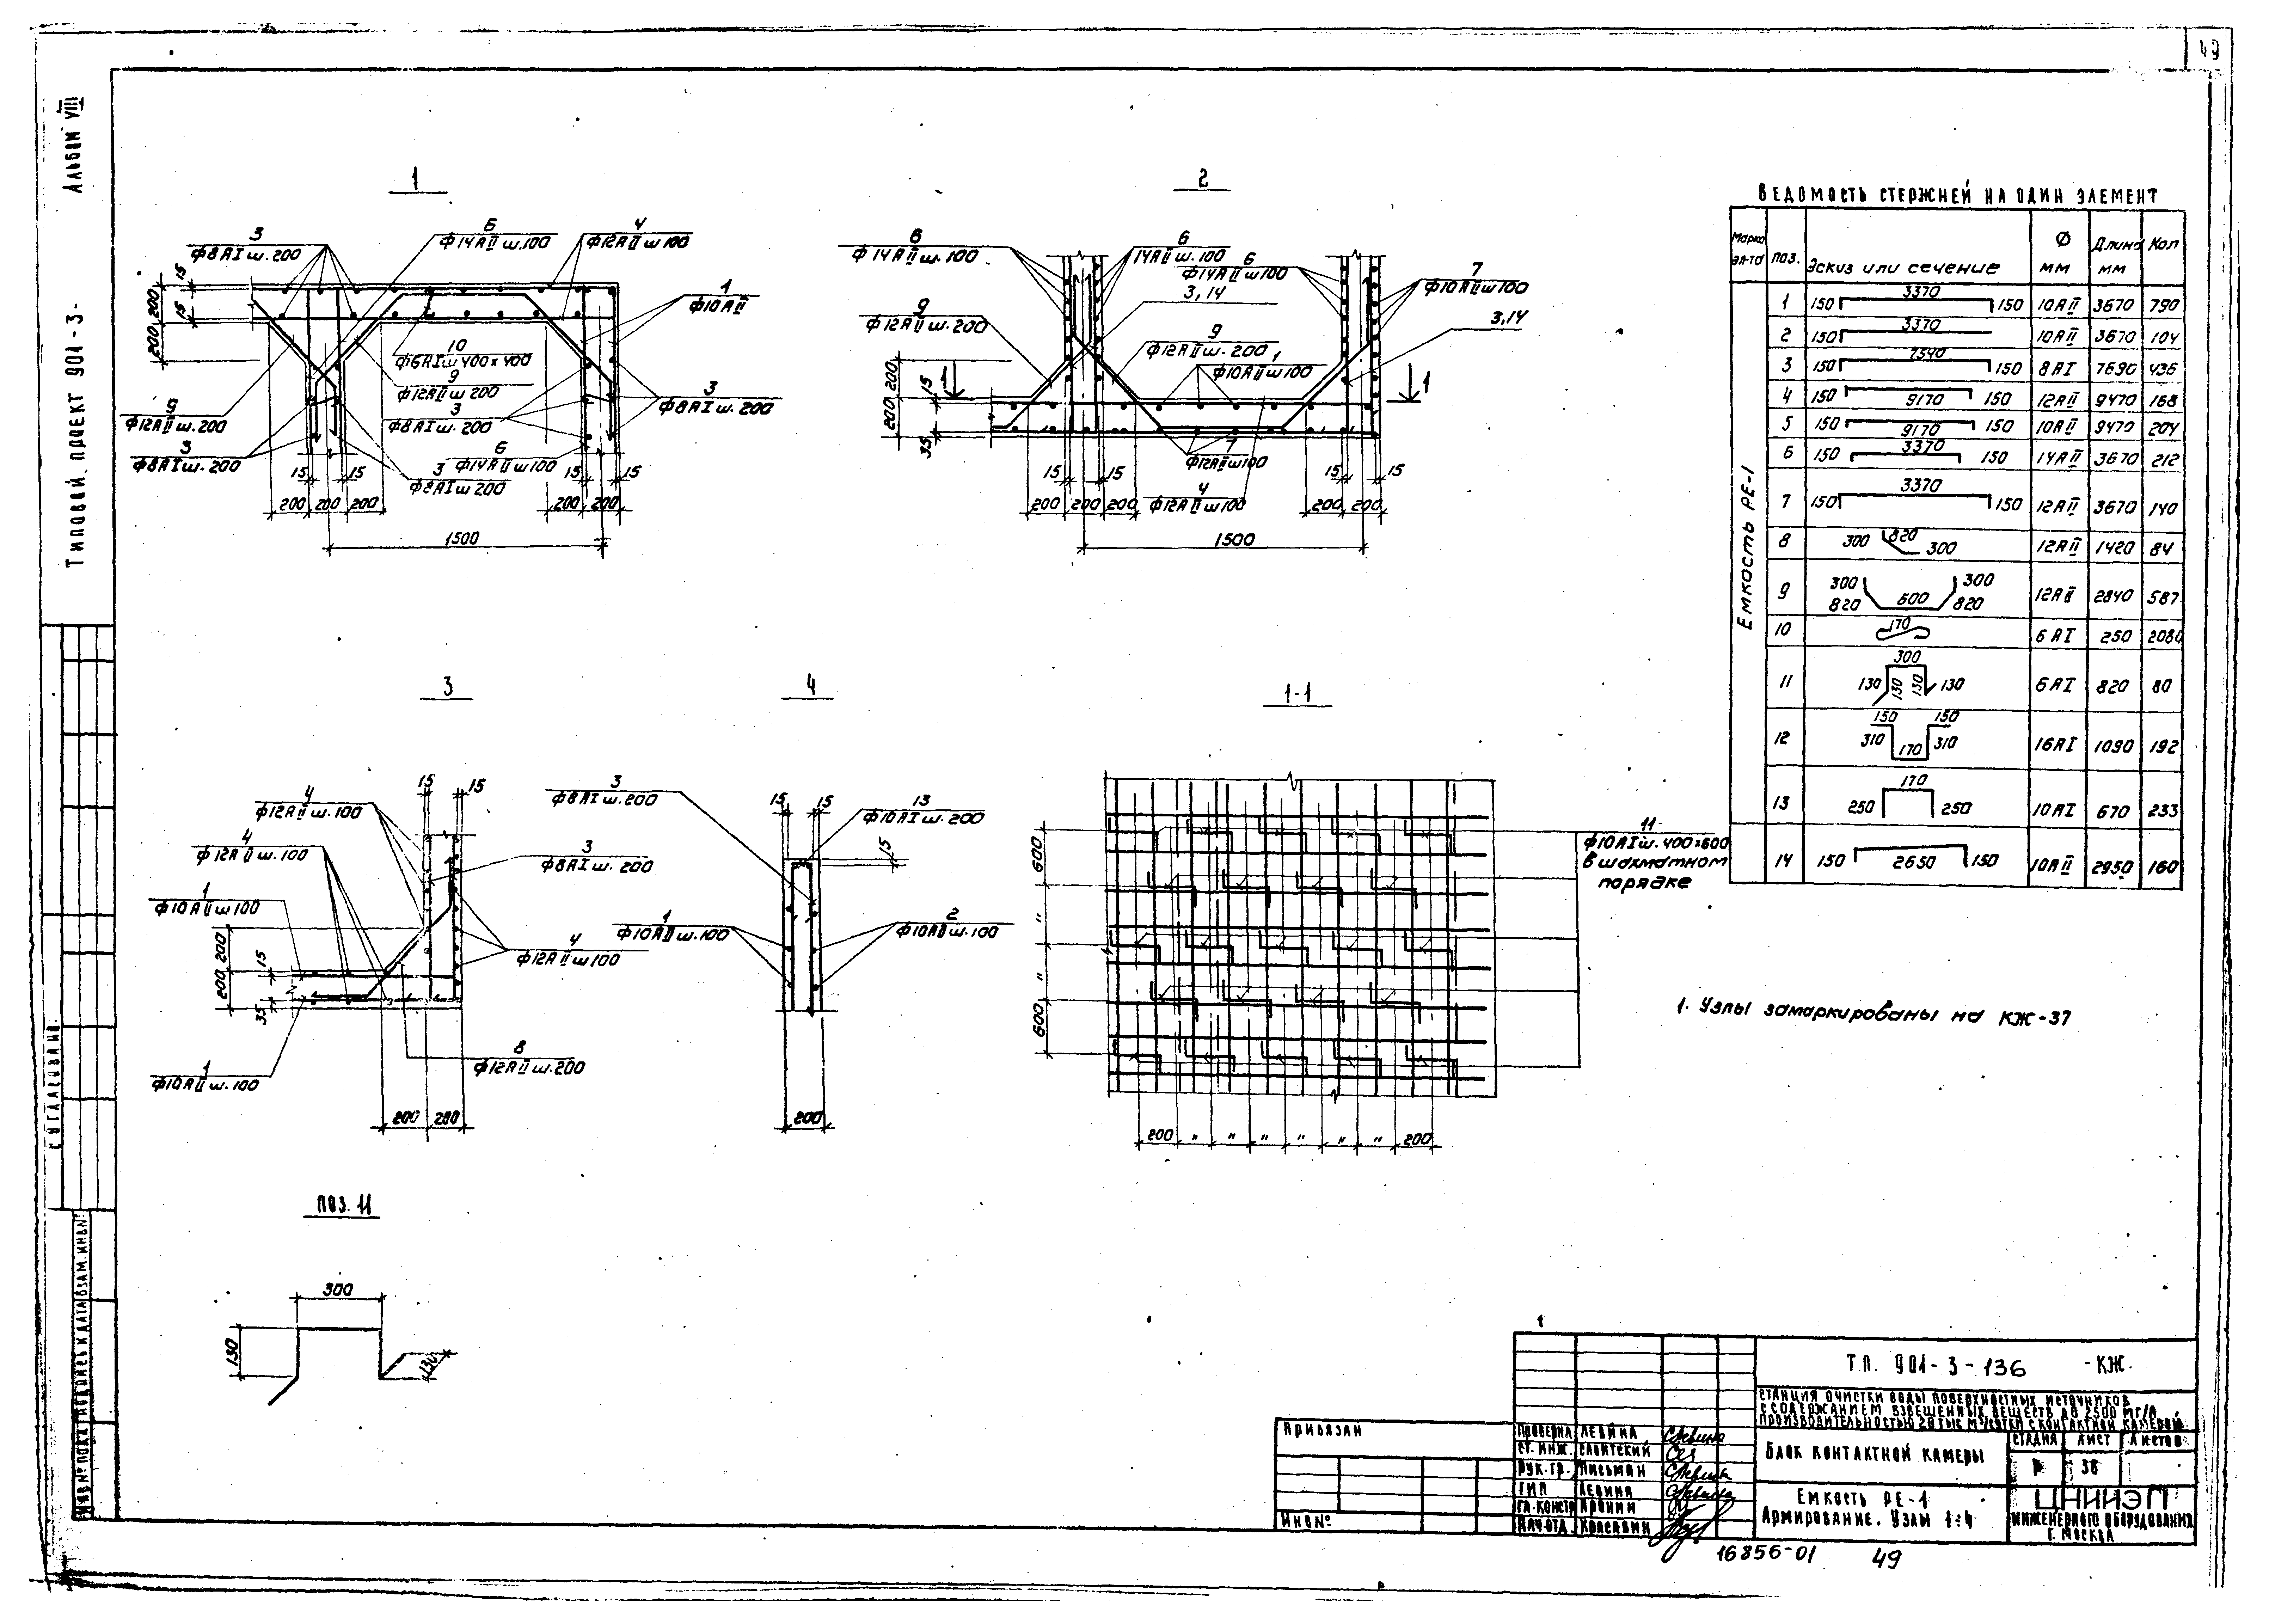 49
Альбом VIII
Типовой проект 901-3-
СОГЛАСОВАНО
Инв.№ подл. Подпись и дата Взам. инв.№
1
3
ф8АI ш.200
6
ф14АII ш.100
4
ф12АII ш 100
1
ф10АII
10
ф16АI ш 400×400
9
ф12АII ш 200
3
ф8АI ш. 200
3
ф8АI ш. 200
ф12АII ш.200
3
ф8АI ш.200
6
ф14АII ш 100
3
ф8АI ш 200
15
15
200
200
15 15 15 15
200 200 200 200 200
1500
2
ф14АII ш.100
6
14АII ш.100
6
ф14АII ш 100
7
ф10АII ш 100
3,14
3,14
9
ф12АII ш.200
9
ф12АII ш.200
1
ф10АII ш 100
7
ф12АII ш 100
4
ф12АII ш 100
1 1
15
35
200 200
15 15 15 15
200 200 200 200 200
1500
3
15 15
4
ф12АII ш.100
4
ф12АII ш.100
1
ф10АII ш 100
3
ф8АI ш. 200
4
ф12АII ш 100
8
ф12АII ш.200
1
ф10АII ш.100
200 200
15
35
200 200
4
15 15
3
ф8АI ш.200
13
ф10АI ш. 200
15
1
ф10АII ш.100
2
ф10АII ш.100
200
1-1
600
"
"
600
200 " " " " " " 200
11
ф10АI ш.400×600
в шахматном
порядке
поз. 11
300
130
130
Ведомость стержней на один элемент
Марка эл-та поз. Эскиз или сечение Ø мм Длина мм Кол
Емкость РЕ-1
1 150 3370 150 10АII 3670 790
2 150 3370 10АII 3670 104
3 150 7540 150 8АI 7690 436
4 150 9170 150 12АII 9470 168
5 150 9170 150 10АII 9470 204
6 150 3370 150 14АII 3670 212
7 150 3370 150 12АII 3670 140
8 300 820 300 12АII 1420 84
9 300 820 600 820 300 12АII 2840 587
10 170 6АI 250 2080
11 130 130 300 130 130 6АI 820 80
12 150 310 170 310 150 16АI 1090 192
13 250 170 250 10АI 670 233
14 150 2650 150 10АII 2950 160
1. Узлы замаркированы на КЖ-37
Привязан
Инв№
Т.П. 901-3-136 -КЖ
Станция очистки воды поверхностных источников
с содержанием взвешенных веществ до 2500 мг/л
производительностью 20 тыс м³/сутки с контактной камерой
Проверил Левина
Ст. инж. Савитский
Рук. гр. Письман
ГИП Левина
Гл. констр Аронин
Нач. отд Красавин
Блок контактной камеры
Стадия Лист Листов
Р 38
Емкость РЕ-1
Армирование. Узлы 1÷4
ЦНИИЭП
инженерного оборудования
г. Москва
16856-01 49